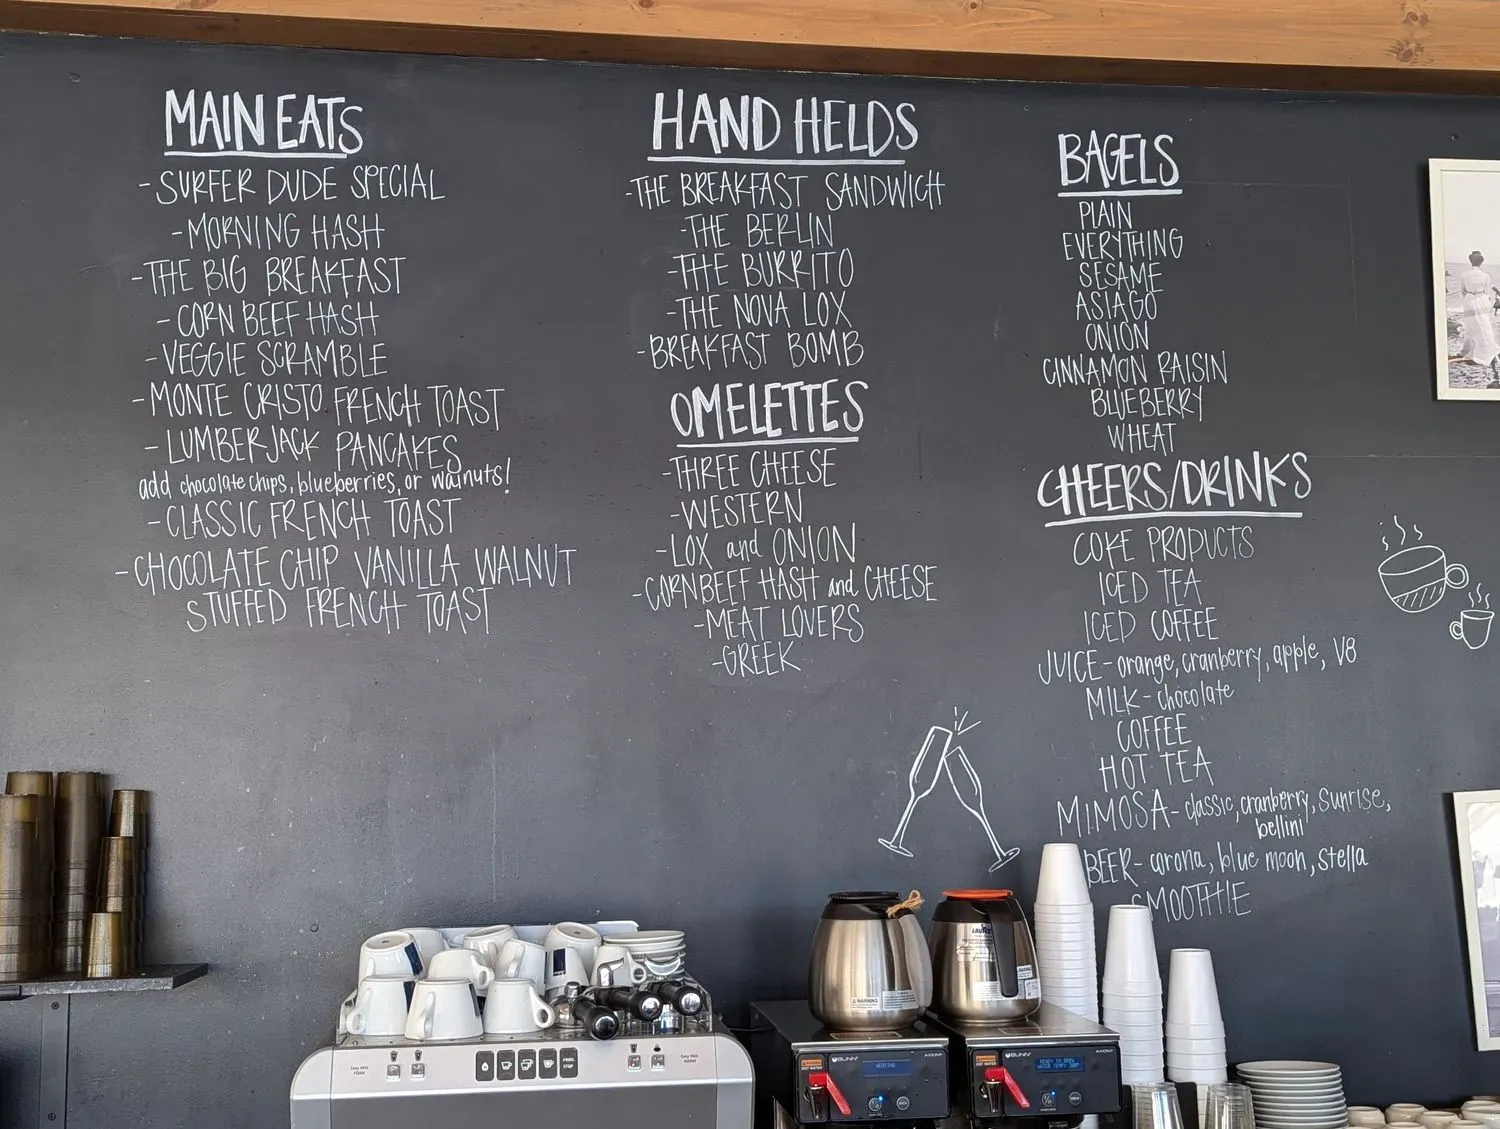 MAIN EATS
- SURFER DUDE SPECIAL
- MORNING HASH
- THE BIG BREAKFAST
- CORN BEEF HASH
- VEGGIE SCRAMBLE
- MONTE CRISTO FRENCH TOAST
- LUMBERJACK PANCAKES
add chocolate chips, blueberries, or walnuts!
- CLASSIC FRENCH TOAST
- CHOCOLATE CHIP VANILLA WALNUT
STUFFED FRENCH TOAST
HAND HELDS
- THE BREAKFAST SANDWICH
- THE BERLIN
- THE BURRITO
- THE NOVA LOX
- BREAKFAST BOMB
OMELETTES
- THREE CHEESE
- WESTERN
- LOX and ONION
- CORNBEEF HASH and CHEESE
- MEAT LOVERS
- GREEK
BAGELS
PLAIN
EVERYTHING
SESAME
ASIAGO
ONION
CINNAMON RAISIN
BLUEBERRY
WHEAT
CHEERS/DRINKS
COKE PRODUCTS
ICED TEA
ICED COFFEE
JUICE - orange, cranberry, apple, V8
MILK - chocolate
COFFEE
HOT TEA
MIMOSA - classic, cranberry, sunrise,
bellini
BEER - corona, blue moon, stella
SMOOTHIE
LAVAZZA
WARNING
WARNING
BUNN
AXIOM
HEATING
HOT WATER
BUNN
AXIOM
READY TO BREW
WATER TEMP: 200°
HOT WATER
Easy Milk
PROG.
STOP
Easy Milk